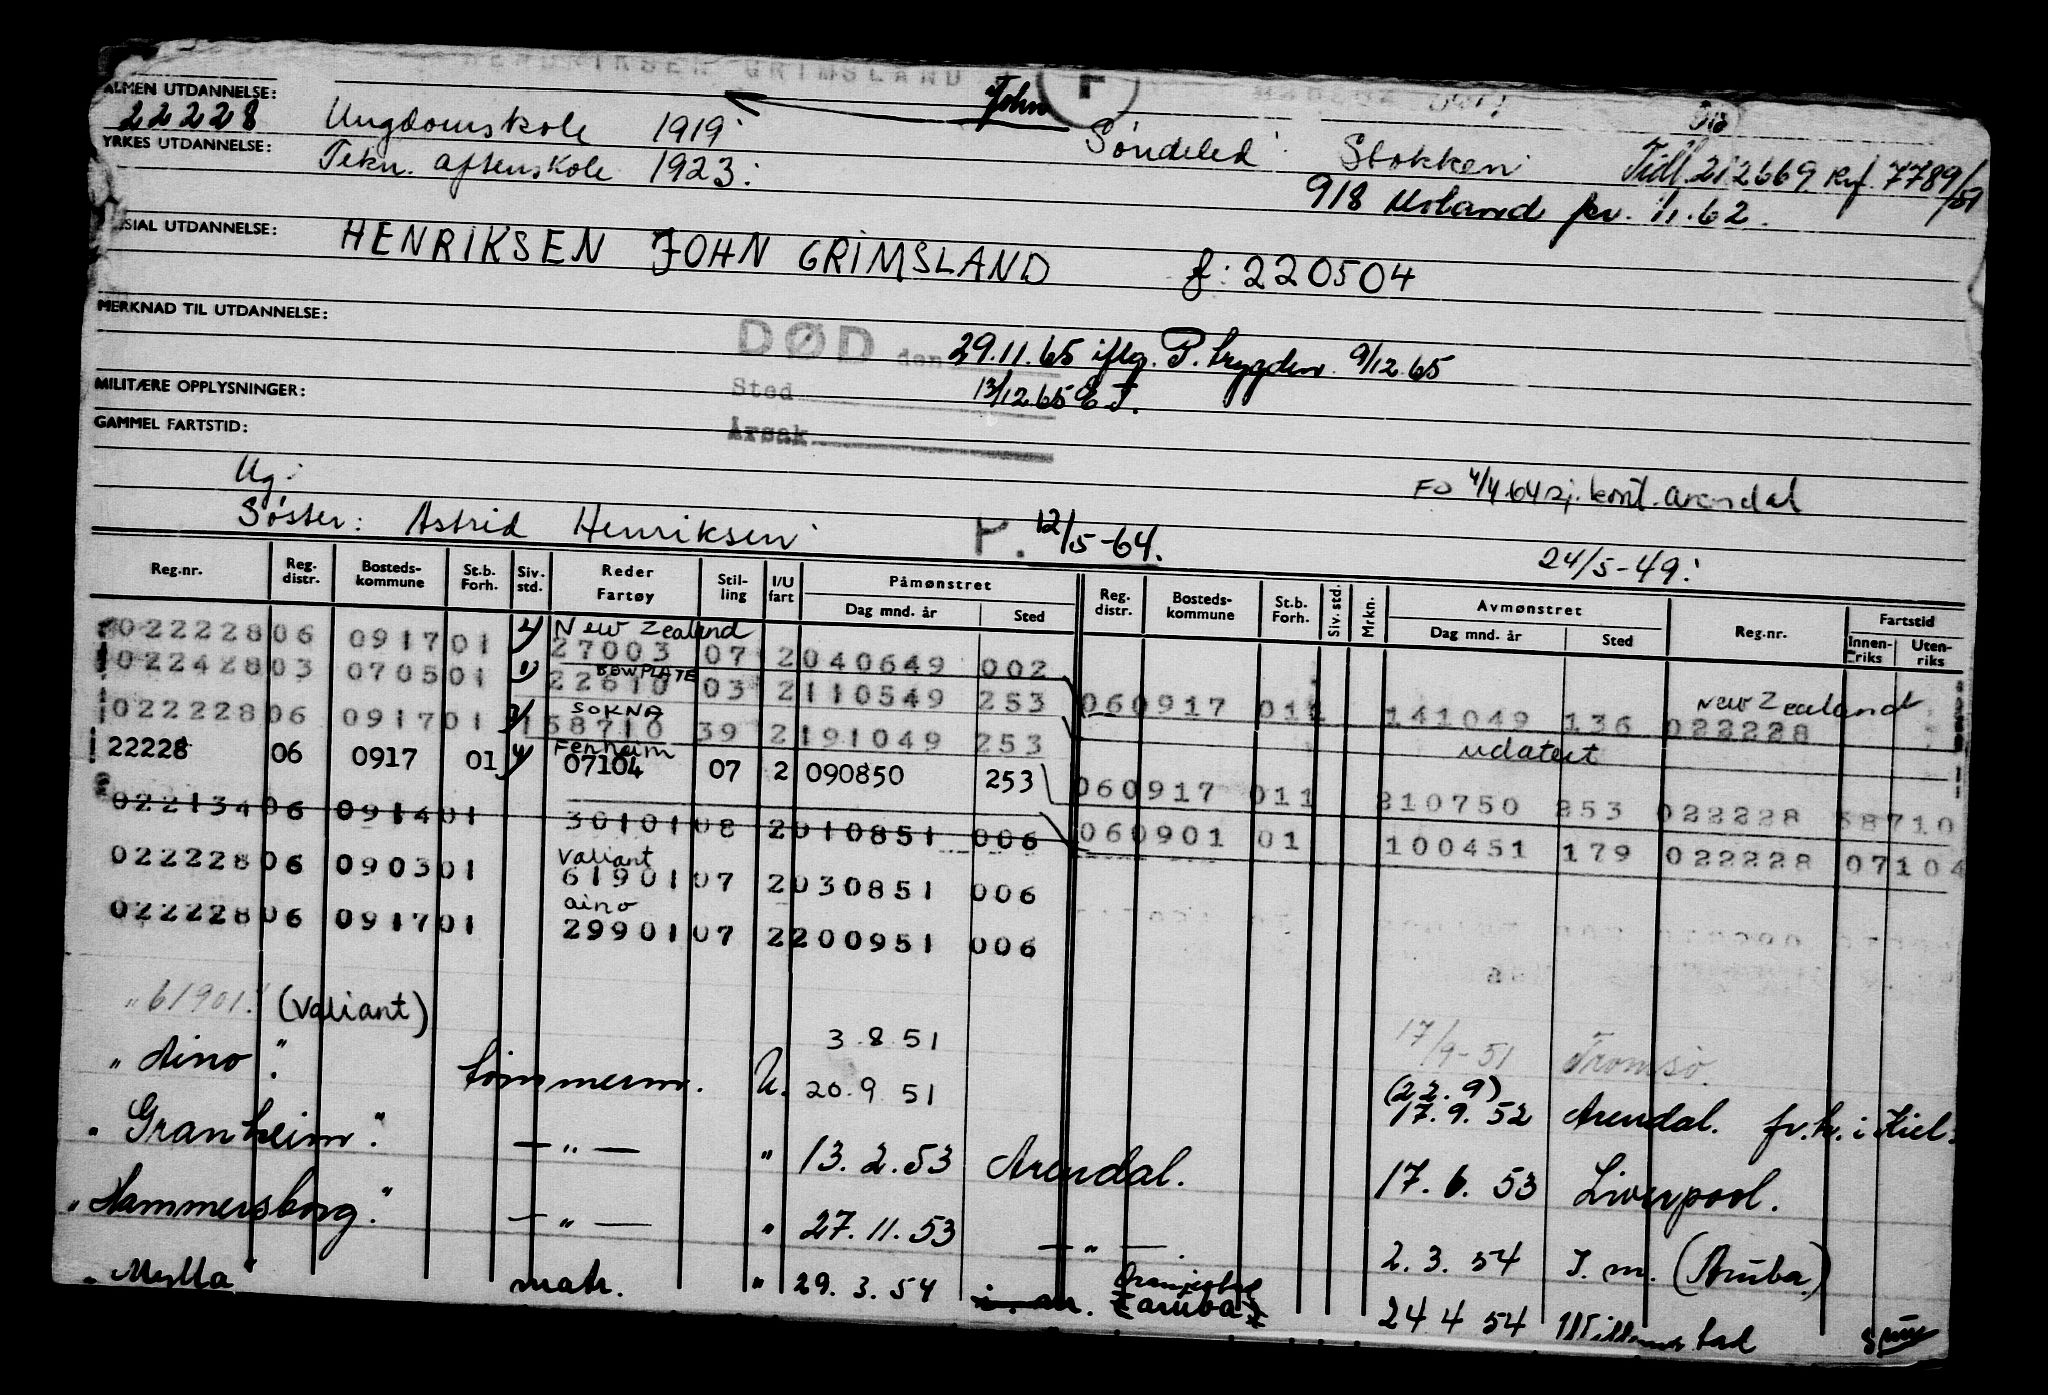 HENDRIKSEN GRIMSLAND
ALMEN UTDANNELSE:
22228 Ungdomskole 1919. John Søndeled Stokken Tidl. 212669 Ref. 7789/51
YRKES UTDANNELSE: Tekn. aftenskole 1923.
918 Moland fr. 1/1.62.
SPESIAL UTDANNELSE: HENRIKSEN JOHN GRIMSLAND f: 220504
MERKNAD TIL UTDANNELSE:
DØD den 29.11.65 iflg. P. trygden 9/12.65
MILITÆRE OPPLYSNINGER: Sted 13/12.65 E J.
GAMMEL FARTSTID: Årsak
Ug. FO 4/4.64 sj. kont. Arendal
Søster: Astrid Henriksen 12/5-64. 24/5-49.
Reg.nr. Reg. distr. Bosteds- kommune St.b. Forh. Siv. std. Reder Fartøy Stil- ling I/U fart Påmønstret Dag mnd. år Sted Reg. distr. Bosteds- kommune St.b. Forh. Siv. std. Mrkn. Avmønstret Dag mnd. år Sted Reg.nr. Fartstid Innen- riks Uten- riks
New Zealand
022228 06 0917 01 27003 07 2 040649 002
BOWPLATE
022428 03 0705 01 22610 03 2 110549 253 06 0917 011 141049 136 022228 New Zealand
SOKNA
022228 06 0917 01 58710 39 2 191049 253 udatert
Fernheim
22228 06 0917 01 07104 07 2 090850 253 06 0917 011 210750 253 022228 58710
022134 06 0914 01 30101 08 2 010851 006 06 0901 01 100451 179 022228 07104
Valiant
022228 06 0903 01 61901 07 2 030851 006
aino
022228 06 0917 01 29901 07 2 200951 006
"61901." (Valiant) 3.8.51 17/9-51 Tromsø.
"Aino" tømmerm. U. 20.9 51 (22.9) 17.9.52 Arendal. fr.h. i Kiel.
"Granheim." — " — " 13.2.53 Arendal. 17.6.53 Liverpool.
"Hammersborg." — " — " 27.11.53 — " —. 2.3.54 I. m. (Aruba)
"Mylla" matr. " 29.3.54 Oranjestad (aruba) 24 4 54 Willemstad